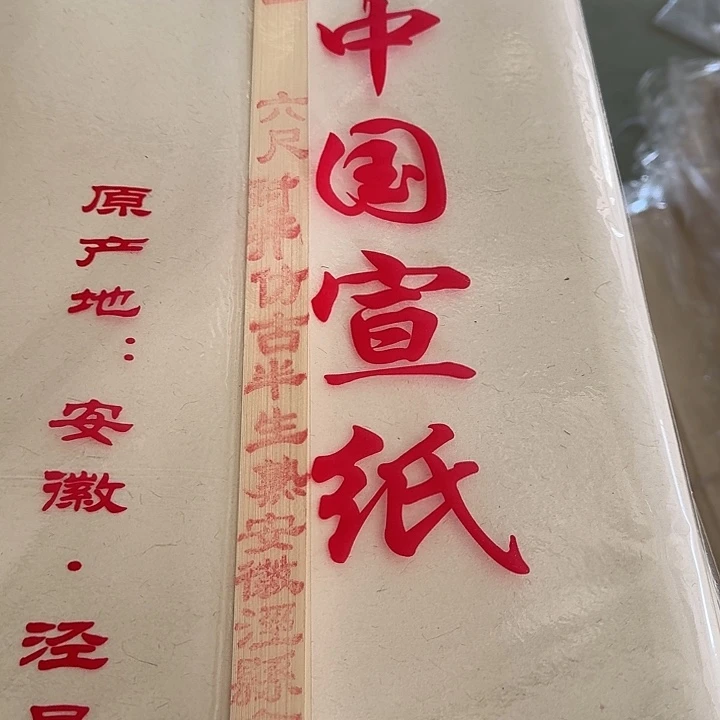 中国宣纸
六尺 仿古半生熟安徽涇縣
原产地：安徽·泾